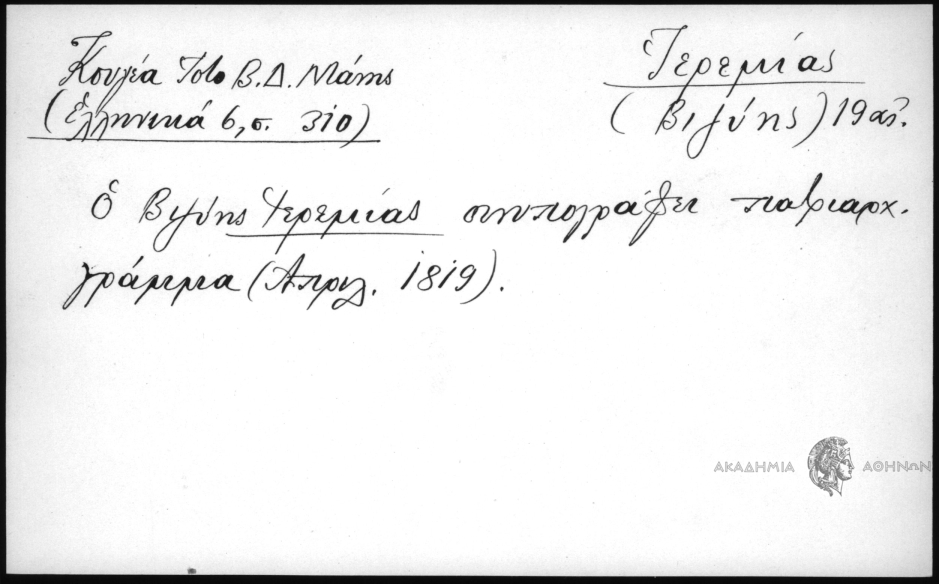 Κουγέα Ἱστ. Β.Δ. Μάνης
(Ἑλληνικά 6, σ. 310)
Ἱερεμίας
(Βιζύης) 19 αἰ.
Ὁ Βιζύης Ἱερεμίας συνυπογράφει πατριαρχ.
γράμμα (Ἀπριλ. 1819).
ΑΚΑΔΗΜΙΑ ΑΘΗΝΩΝ